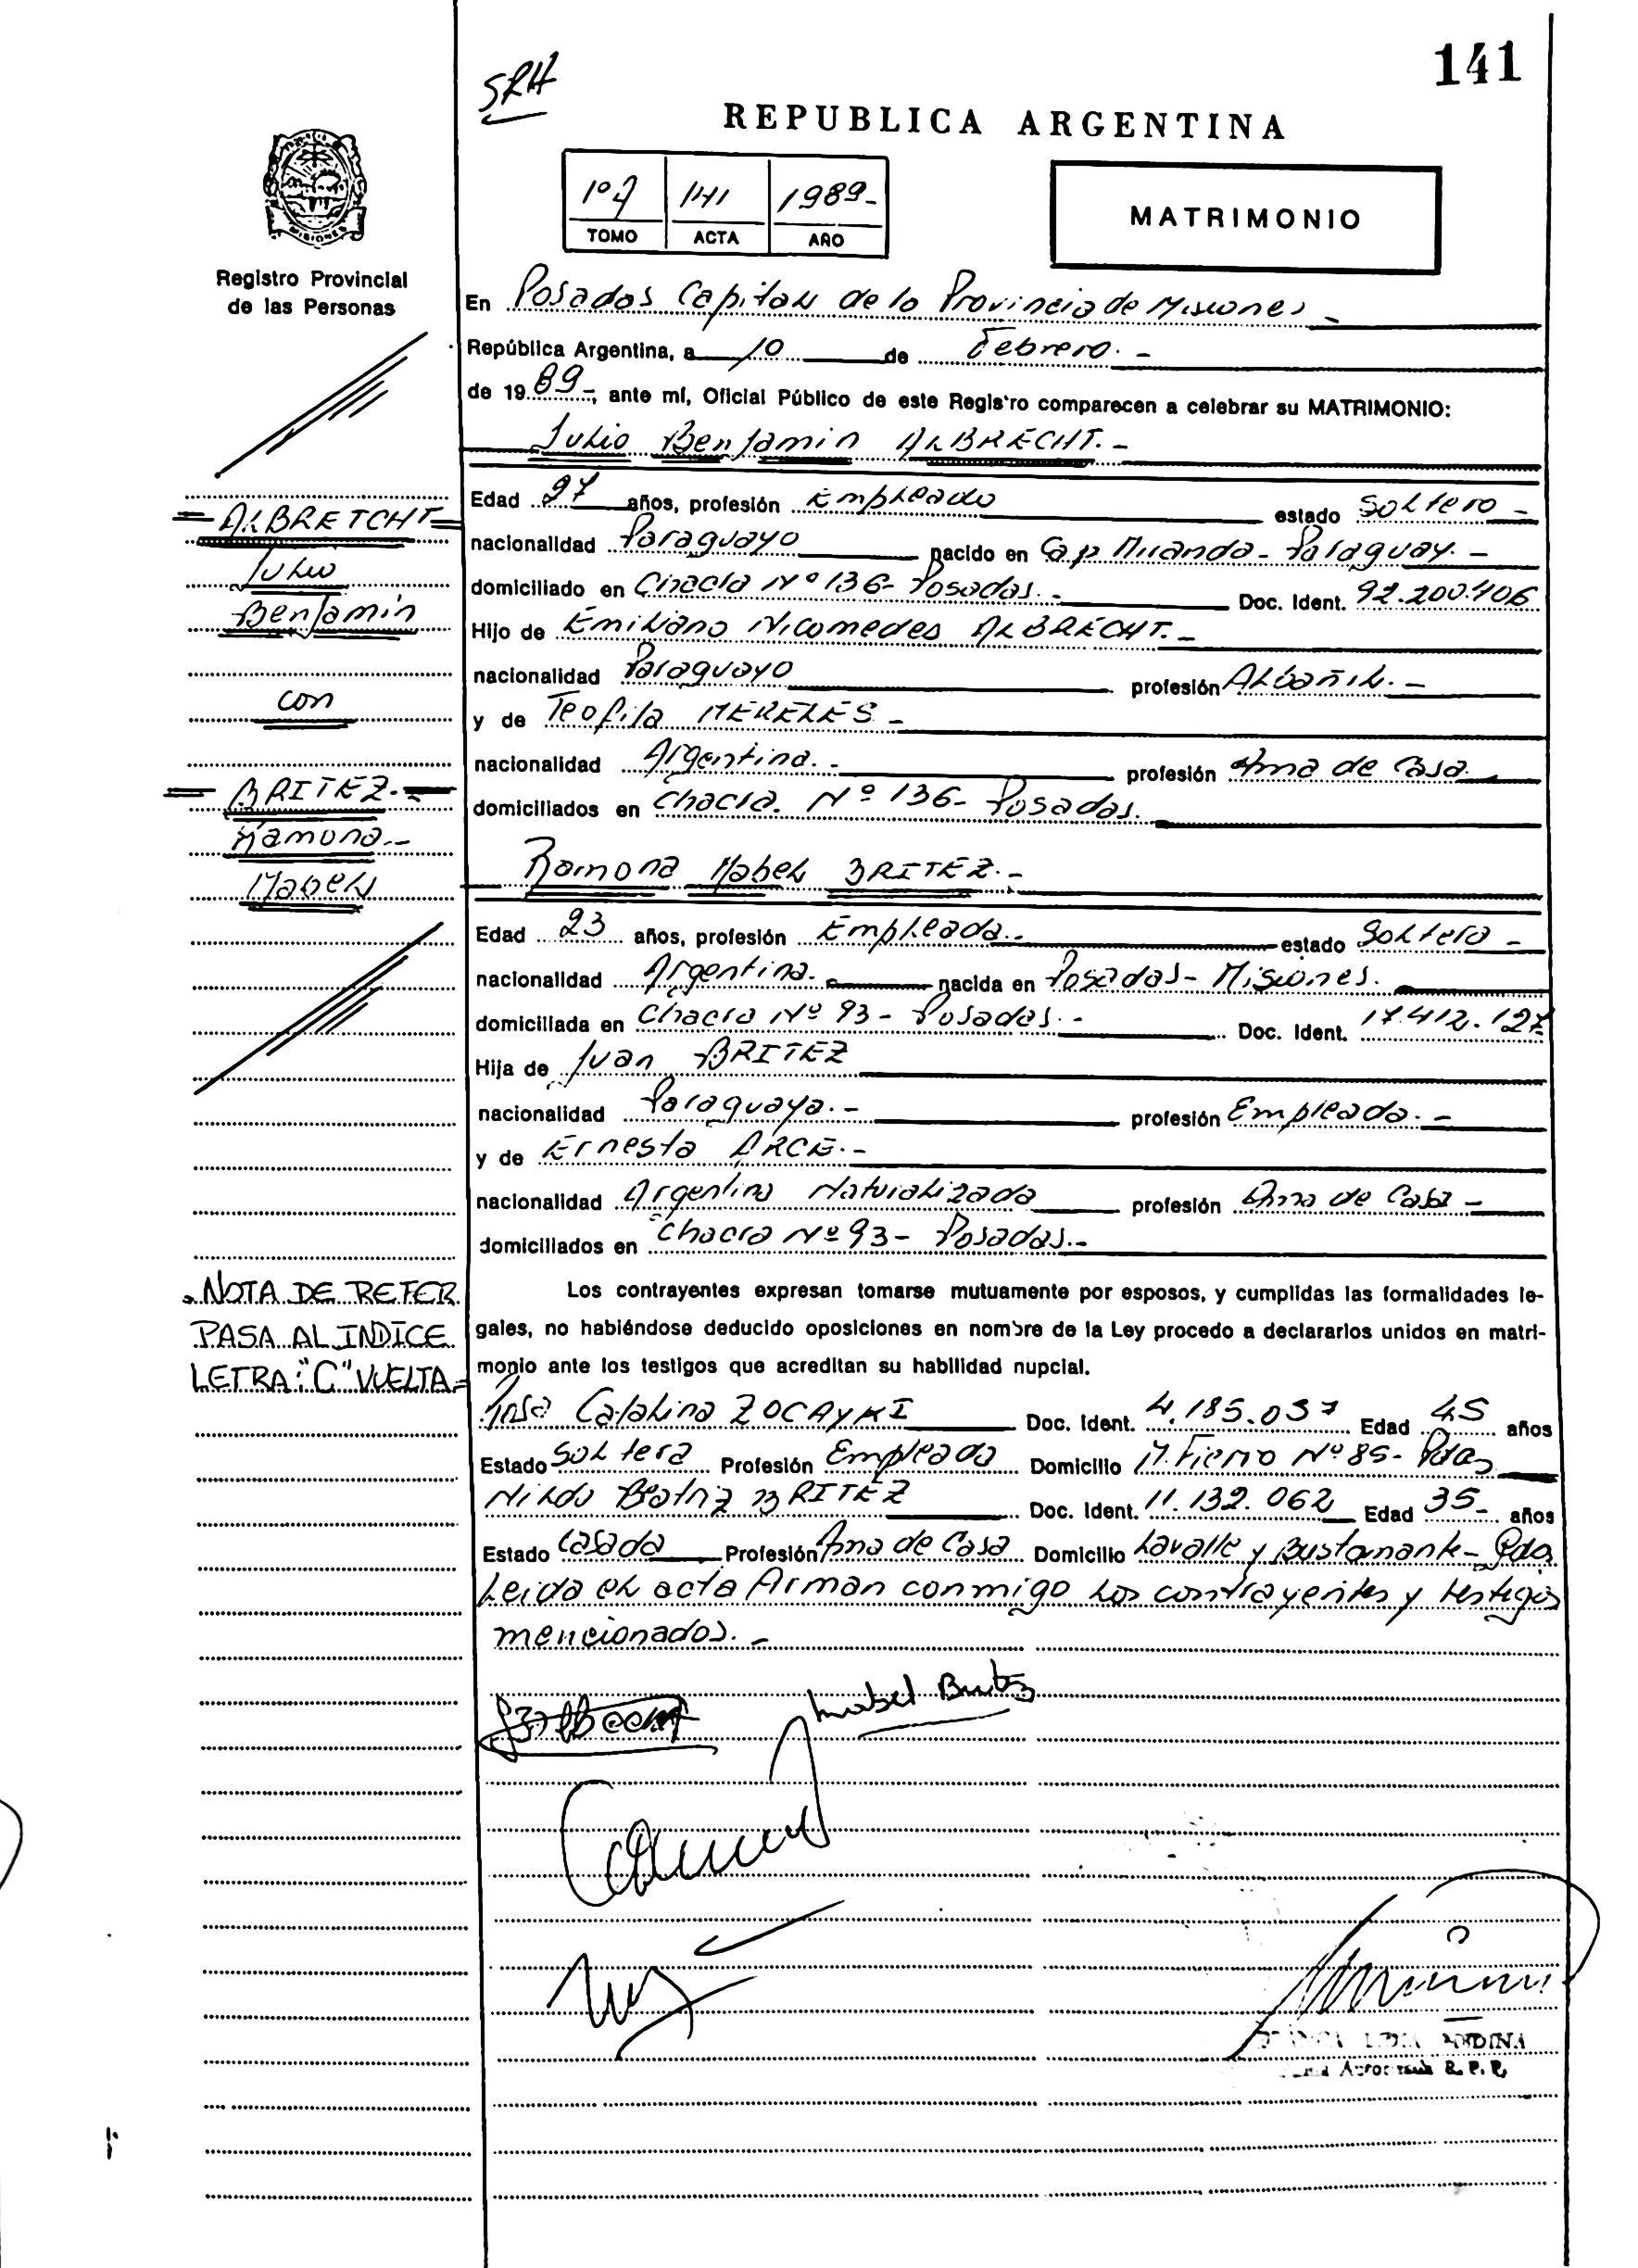 141
SRH
REPUBLICA ARGENTINA
1º 141 1989-
TOMO ACTA AÑO
MATRIMONIO
MISIONES
Registro Provincial
de las Personas
En Posadas Capital de la Provincia de Misiones -
República Argentina, a 10 de Febrero. -
de 1989-, ante mí, Oficial Público de este Registro comparecen a celebrar su MATRIMONIO:
Julio Benjamin ALBRECHT. -
Edad 27 años, profesión Empleado estado Soltero -
nacionalidad Paraguayo nacido en Cap. Miranda - Paraguay. -
domiciliado en Chacra Nº 136- Posadas. - Doc. Ident. 92.200.406
Hijo de Emiliano Nicomedes ALBRECHT. -
nacionalidad Paraguayo profesión Albañil. -
y de Teofila MERELES -
nacionalidad Argentina. - profesión Ama de Casa.
domiciliados en Chacra. Nº 136- Posadas.
= ALBRETCHT =
Julio
Benjamin
con
= BRITEZ. =
Ramona. -
Mabel
Ramona Mabel BRITEZ. -
Edad 23 años, profesión Empleada. - estado Soltera -
nacionalidad Argentina. nacida en Posadas - Misiones.
domiciliada en Chacra Nº 93 - Posadas. - Doc. Ident. 17.412.127
Hija de Juan BRITEZ
nacionalidad Paraguaya. - profesión Empleado. -
y de Ernesta ARCE. -
nacionalidad Argentina Naturalizada profesión Ama de Casa -
domiciliados en Chacra Nº 93 - Posadas. -
NOTA DE REFER
PASA AL INDICE
LETRA: "C" VUELTA =
Los contrayentes expresan tomarse mutuamente por esposos, y cumplidas las formalidades le-
gales, no habiéndose deducido oposiciones en nombre de la Ley procedo a declararlos unidos en matri-
monio ante los testigos que acreditan su habilidad nupcial.
Rosa Catalina ZOCAYKI Doc. Ident. 4.185.037 Edad 45 años
Estado Soltera Profesión Empleada Domicilio M. Fierro Nº 85- Pdas
Nilda Beatriz BRITEZ Doc. Ident. 11.132.062 Edad 35- años
Estado Casada Profesión Ama de Casa Domicilio Lavalle y Bustamante - Pdas
Leida el acta firman conmigo los contrayentes y testigos
mencionados. -
Mabel Britez
ANDINA
R. P. P.